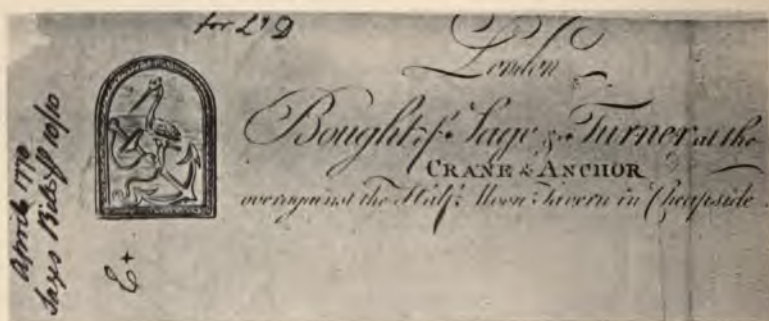 for Lᵈ D
London
Bought of Sage & Turner at the
CRANE & ANCHOR
over against the Half Moon Tavern in Cheapside
April 1770
Sages Bill of 10/10
E+